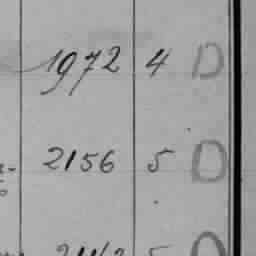 1972 4 D
2156 5 D